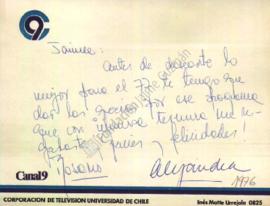 9
Jaime:
antes de desearte lo
mejor para el 77 te tengo que
dar las gracias por ese programa
que con inmensa ternura me
gracias y felicidades!
Alejandra
1976
Canal 9
CORPORACION DE TELEVISION UNIVERSIDAD DE CHILE Inés Matte Urrejola 0825